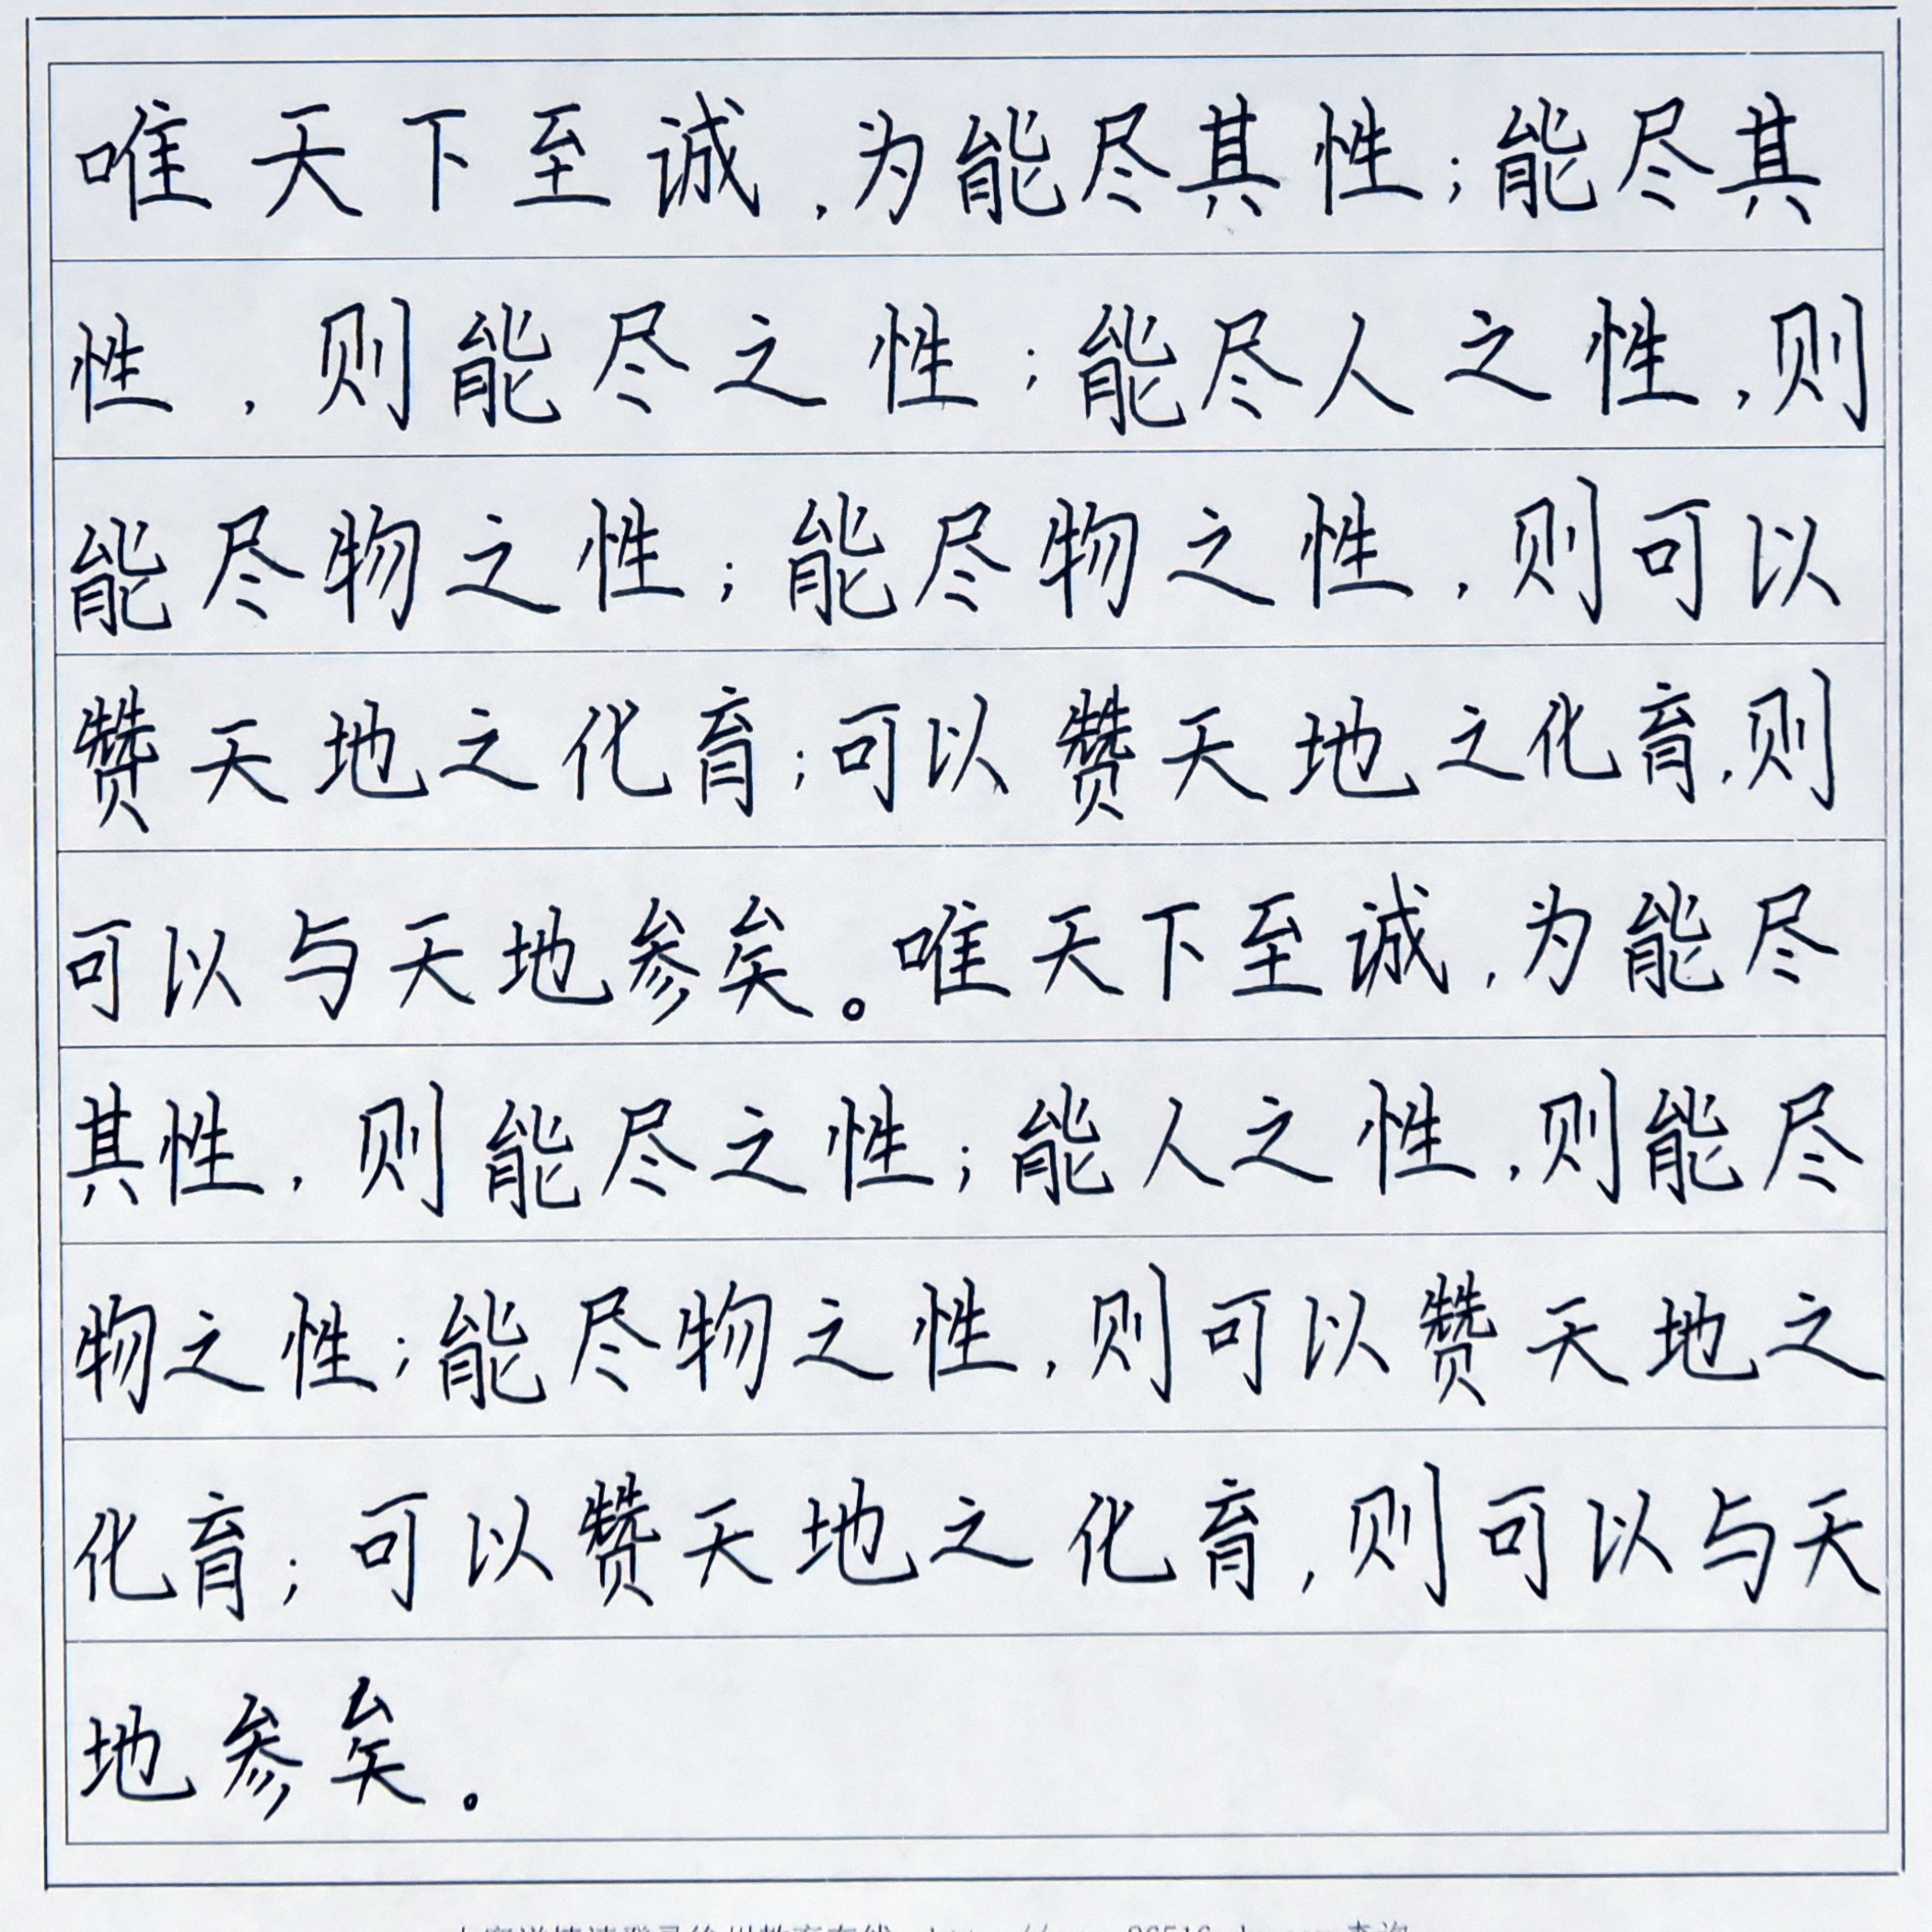 唯天下至诚,为能尽其性;能尽其
性,则能尽之性;能尽人之性,则
能尽物之性;能尽物之性,则可以
赞天地之化育;可以赞天地之化育,则
可以与天地参矣。唯天下至诚,为能尽
其性,则能尽之性;能人之性,则能尽
物之性;能尽物之性,则可以赞天地之
化育;可以赞天地之化育,则可以与天
地参矣。